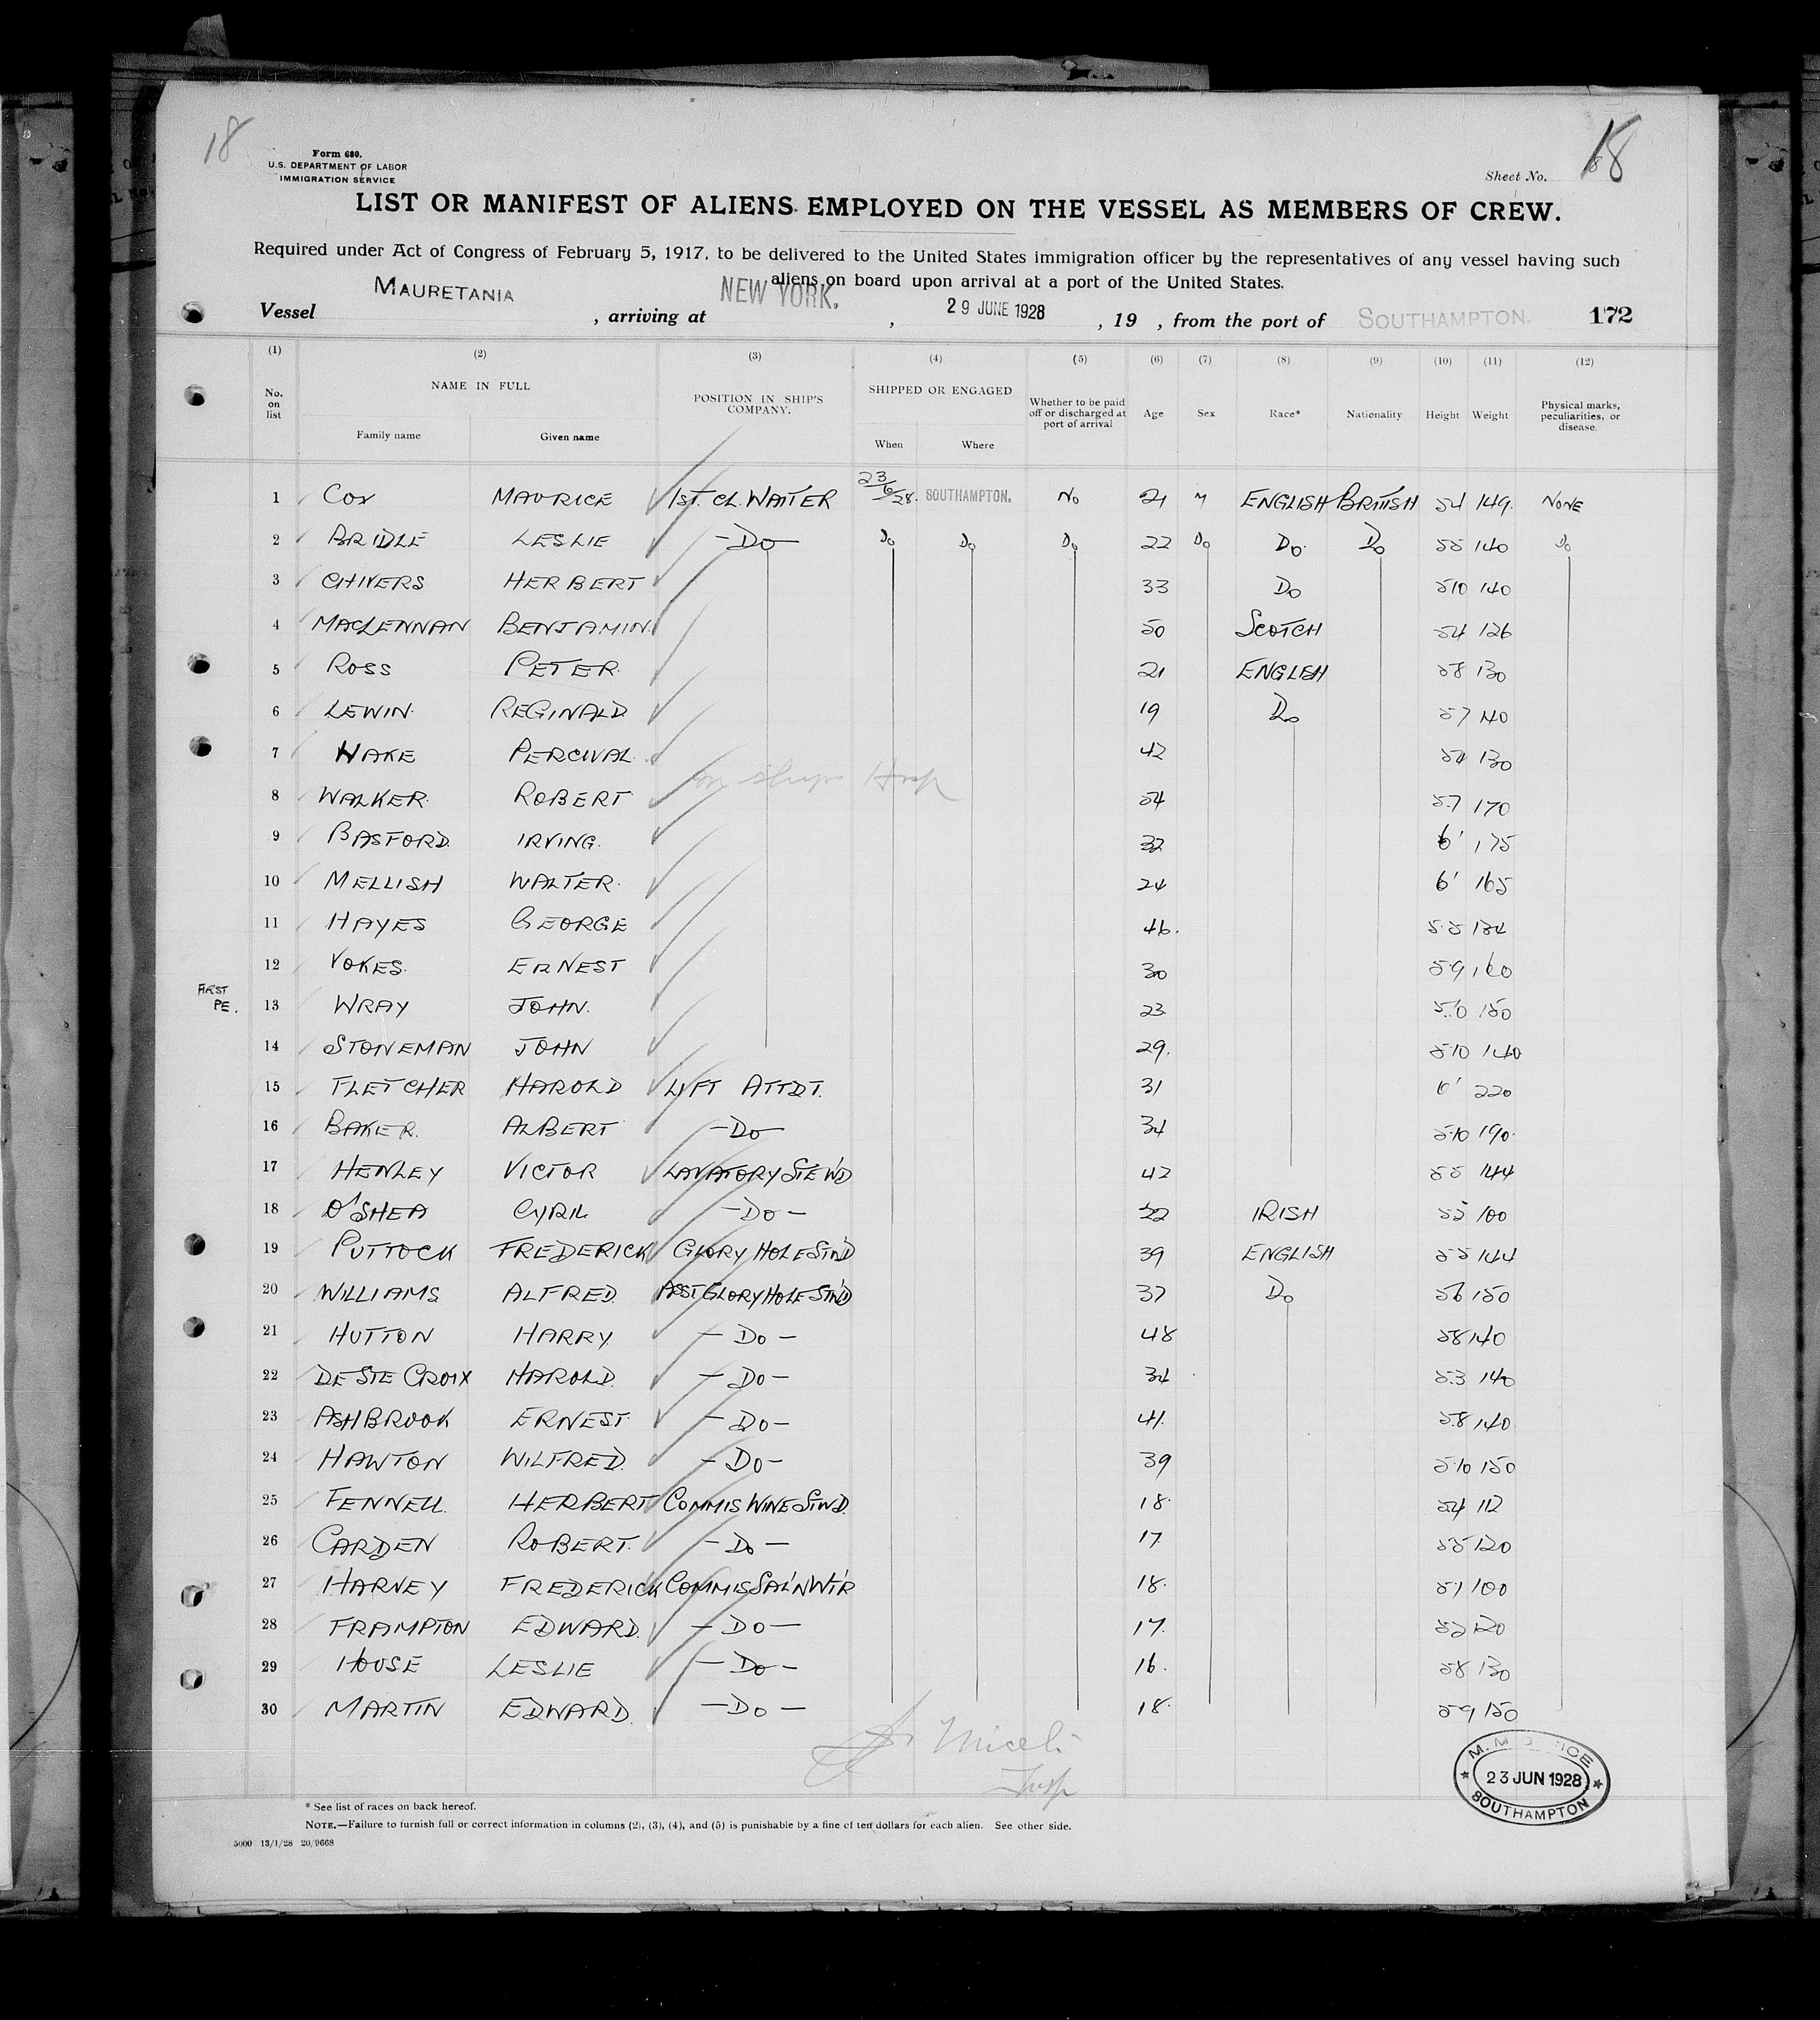 18
Form 680.
U.S. DEPARTMENT OF LABOR
IMMIGRATION SERVICE
Sheet No. 18
LIST OR MANIFEST OF ALIENS EMPLOYED ON THE VESSEL AS MEMBERS OF CREW.
Required under Act of Congress of February 5, 1917, to be delivered to the United States immigration officer by the representatives of any vessel having such
aliens on board upon arrival at a port of the United States.
Vessel MAURETANIA, arriving at NEW YORK., 29 JUNE 1928, 19 , from the port of SOUTHAMPTON. 172
(1) (2) (3) (4) (5) (6) (7) (8) (9) (10) (11) (12)
No. on list NAME IN FULL Family name Given name POSITION IN SHIP'S COMPANY. SHIPPED OR ENGAGED When Where Whether to be paid off or discharged at port of arrival Age Sex Race* Nationality Height Weight Physical marks, peculiarities, or disease.
1 COX MAURICE 1ST. CL. WAITER 23/6/28. SOUTHAMPTON. No 21 M ENGLISH BRITISH 54 149. NONE
2 BRIDLE LESLIE -DO- Do Do Do 22 Do Do. Do 55 140 Do
3 CHIVERS HERBERT 33 Do 510 140
4 MACLENNAN BENJAMIN. 50 SCOTCH 54 126
5 ROSS PETER. 21 ENGLISH 58 130
6 LEWIN. REGINALD 19 Do 57 140
7 HAKE PERCIVAL. 42 54 130
on ships Hosp
8 WALKER. ROBERT 54 5.7 170
9 BASFORD. IRVING. 32 6' 175
10 MELLISH WALTER. 24 6' 165
11 HAYES GEORGE 46. 5.5 134
12 VOKES. ERNEST 30 59 160
FIRST
PE.
13 WRAY JOHN. 23 150
14 STONEMAN JOHN 29. 510 140
15 FLETCHER HAROLD LIFT ATTDT. 31 6' 220
16 BAKER. ALBERT -DO- 34 5.10 190.
17 HENLEY VICTOR LAVATORY STEW'D 42 55 144
18 O'SHEA CYRIL -DO- 22 IRISH 55 100
19 PUTTOCK FREDERICK GLORY HOLE ST'D 39 ENGLISH 55 144
20 WILLIAMS ALFRED. ASST GLORY HOLE ST'D 37 Do 56 150
21 HUTTON HARRY. -DO- 48 58 140
22 DE STE CROIX HAROLD. -DO- 34 5.3 140
23 ASHBROOK ERNEST -DO- 41. 5.8 140
24 HAWTON WILFRED. -DO- 39 510 150
25 FENNELL. HERBERT COMMIS WINE STWD. 18. 54 112
26 CARDEN ROBERT. -DO- 17. 55 120
27 HARVEY FREDERICK COMMIS SAL'N WT'R 18. 51 100
28 FRAMPTON EDWARD. -DO- 17. 120
29 HOUSE LESLIE -DO- 16. 58 130
30 MARTIN EDWARD. -DO- 18. 59 150
Miceli
Insp
23 JUN 1928
SOUTHAMPTON
* See list of races on back hereof.
NOTE.—Failure to furnish full or correct information in columns (2), (3), (4), and (5) is punishable by a fine of ten dollars for each alien. See other side.
5000 13/1/28 20/9668